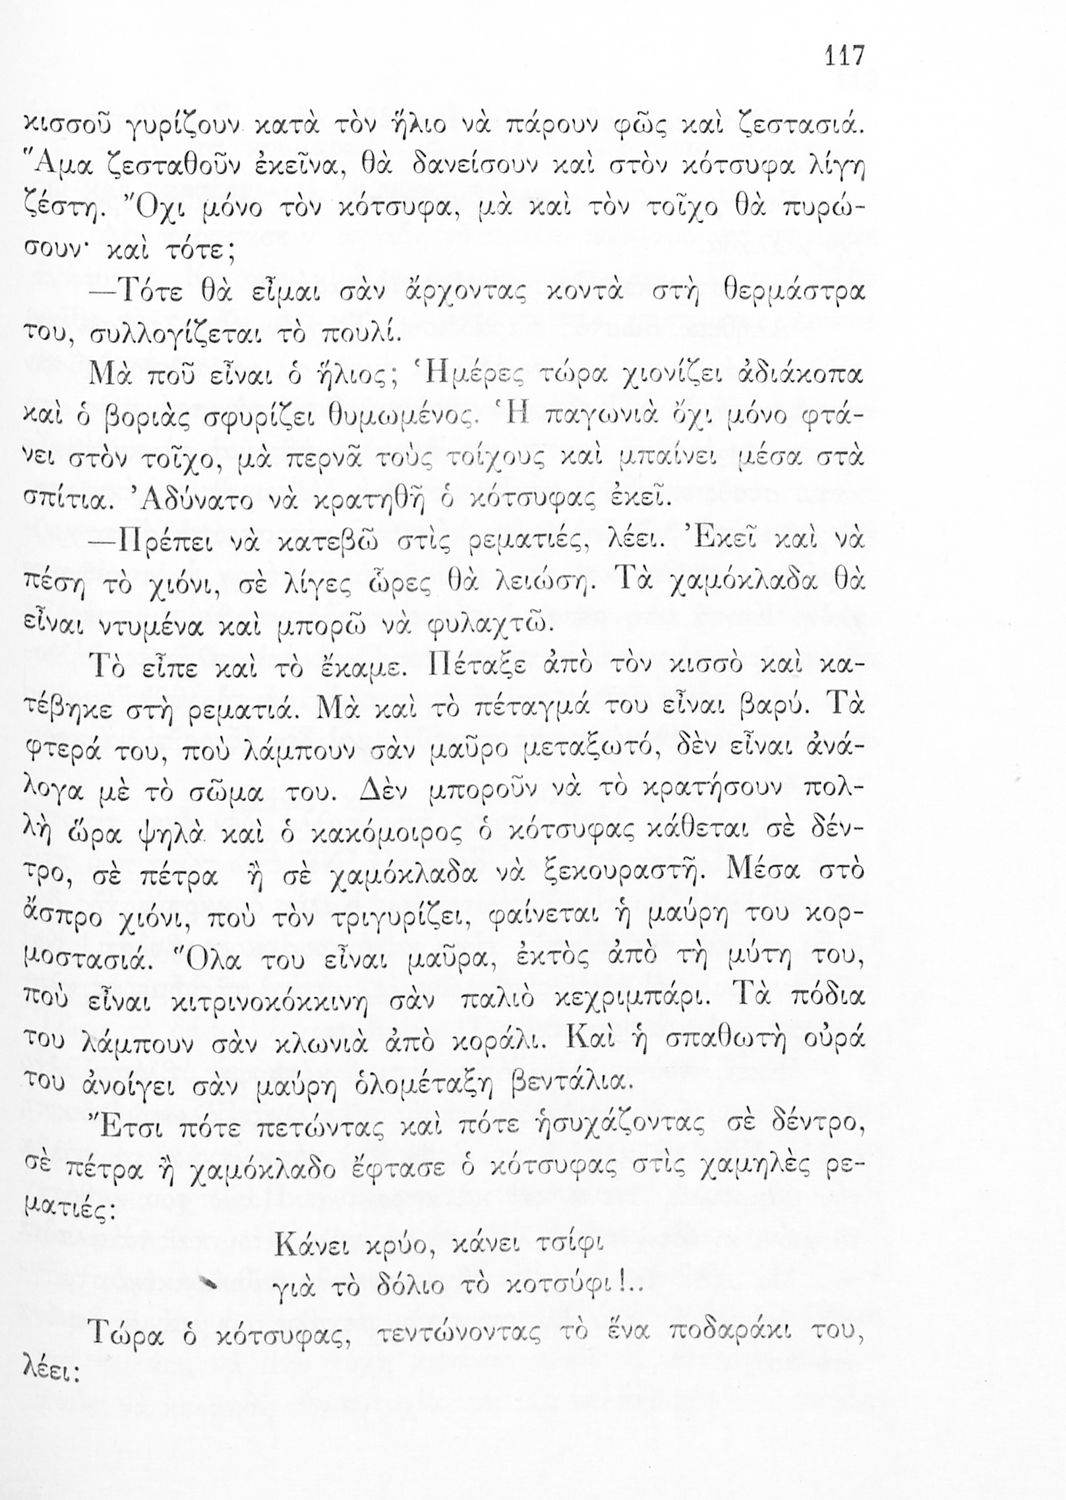 117
κισσοῦ γυρίζουν κατὰ τὸν ἥλιο νὰ πάρουν φῶς καὶ ζεστασιά.
Ἅμα ζεσταθοῦν ἐκεῖνα, θὰ δανείσουν καὶ στὸν κότσυφα λίγη
ζέστη. Ὄχι μόνο τὸν κότσυφα, μὰ καὶ τὸν τοῖχο θὰ πυρώ-
σουν· καὶ τότε;
—Τότε θὰ εἶμαι σὰν ἄρχοντας κοντὰ στὴ θερμάστρα
του, συλλογίζεται τὸ πουλί.
Μὰ ποῦ εἶναι ὁ ἥλιος; Ἡμέρες τώρα χιονίζει ἀδιάκοπα
καὶ ὁ βοριὰς σφυρίζει θυμωμένος. Ἡ παγωνιὰ ὄχι μόνο φτά-
νει στὸν τοῖχο, μὰ περνᾶ τοὺς τοίχους καὶ μπαίνει μέσα στὰ
σπίτια. Ἀδύνατο νὰ κρατηθῆ ὁ κότσυφας ἐκεῖ.
—Πρέπει νὰ κατεβῶ στὶς ρεματιές, λέει. Ἐκεῖ καὶ νὰ
πέση τὸ χιόνι, σὲ λίγες ὧρες θὰ λειώση. Τὰ χαμόκλαδα θὰ
εἶναι ντυμένα καὶ μπορῶ νὰ φυλαχτῶ.
Τὸ εἶπε καὶ τὸ ἔκαμε. Πέταξε ἀπὸ τὸν κισσὸ καὶ κα-
τέβηκε στὴ ρεματιά. Μὰ καὶ τὸ πέταγμά του εἶναι βαρύ. Τὰ
φτερά του, ποὺ λάμπουν σὰν μαῦρο μεταξωτό, δὲν εἶναι ἀνά-
λογα μὲ τὸ σῶμα του. Δὲν μποροῦν νὰ τὸ κρατήσουν πολ-
λὴ ὥρα ψηλὰ καὶ ὁ κακόμοιρος ὁ κότσυφας κάθεται σὲ δέν-
τρο, σὲ πέτρα ἢ σὲ χαμόκλαδα νὰ ξεκουραστῆ. Μέσα στὸ
ἄσπρο χιόνι, ποὺ τὸν τριγυρίζει, φαίνεται ἡ μαύρη του κορ-
μοστασιά. Ὅλα του εἶναι μαῦρα, ἐκτὸς ἀπὸ τὴ μύτη του,
ποὺ εἶναι κιτρινοκόκκινη σὰν παλιὸ κεχριμπάρι. Τὰ πόδια
του λάμπουν σὰν κλωνιὰ ἀπὸ κοράλι. Καὶ ἡ σπαθωτὴ οὐρά
του ἀνοίγει σὰν μαύρη ὁλομέταξη βεντάλια.
Ἔτσι πότε πετώντας καὶ πότε ἡσυχάζοντας σὲ δέντρο,
σὲ πέτρα ἢ χαμόκλαδο ἔφτασε ὁ κότσυφας στὶς χαμηλὲς ρε-
ματιές:
Κάνει κρύο, κάνει τσίφι
γιὰ τὸ δόλιο τὸ κοτσύφι!..
Τώρα ὁ κότσυφας, τεντώνοντας τὸ ἕνα ποδαράκι του,
λέει: